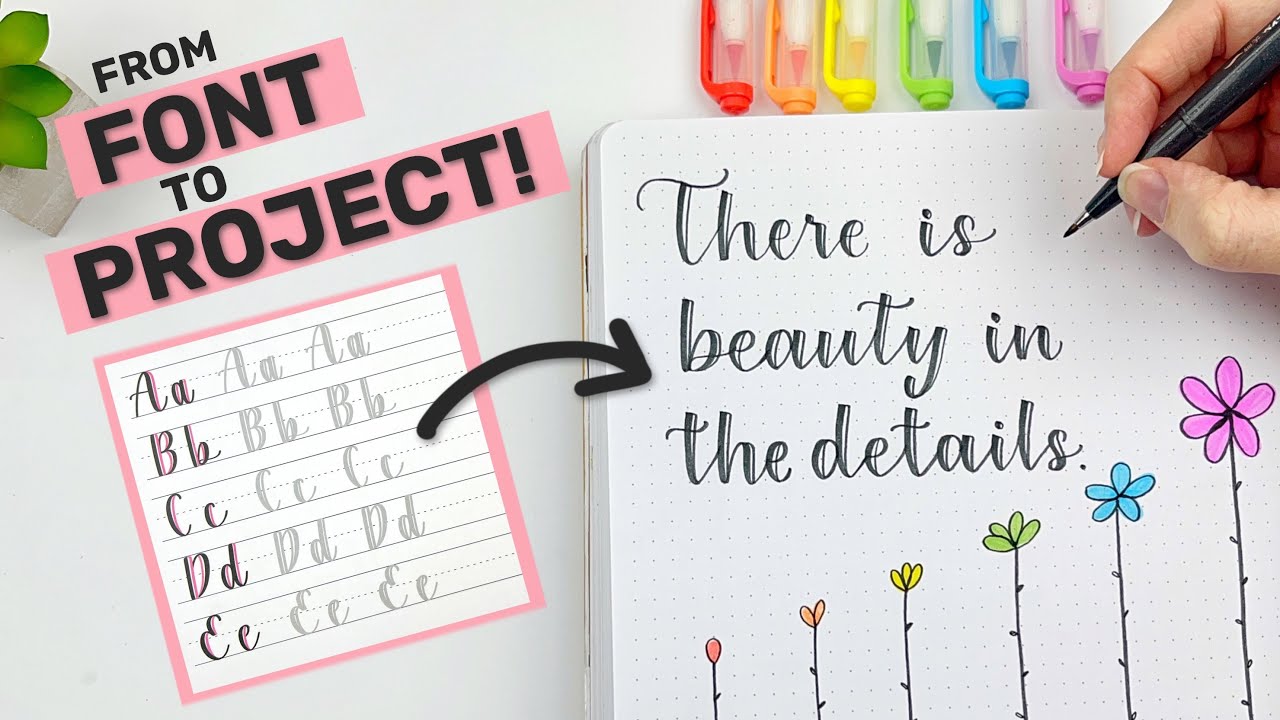 FROM
FONT
TO
PROJECT!
Aa Aa Aa
Bb Bb Bb
Cc Cc Cc
Dd Dd Dd
Ee Ee Ee
There is
beauty in
the details.